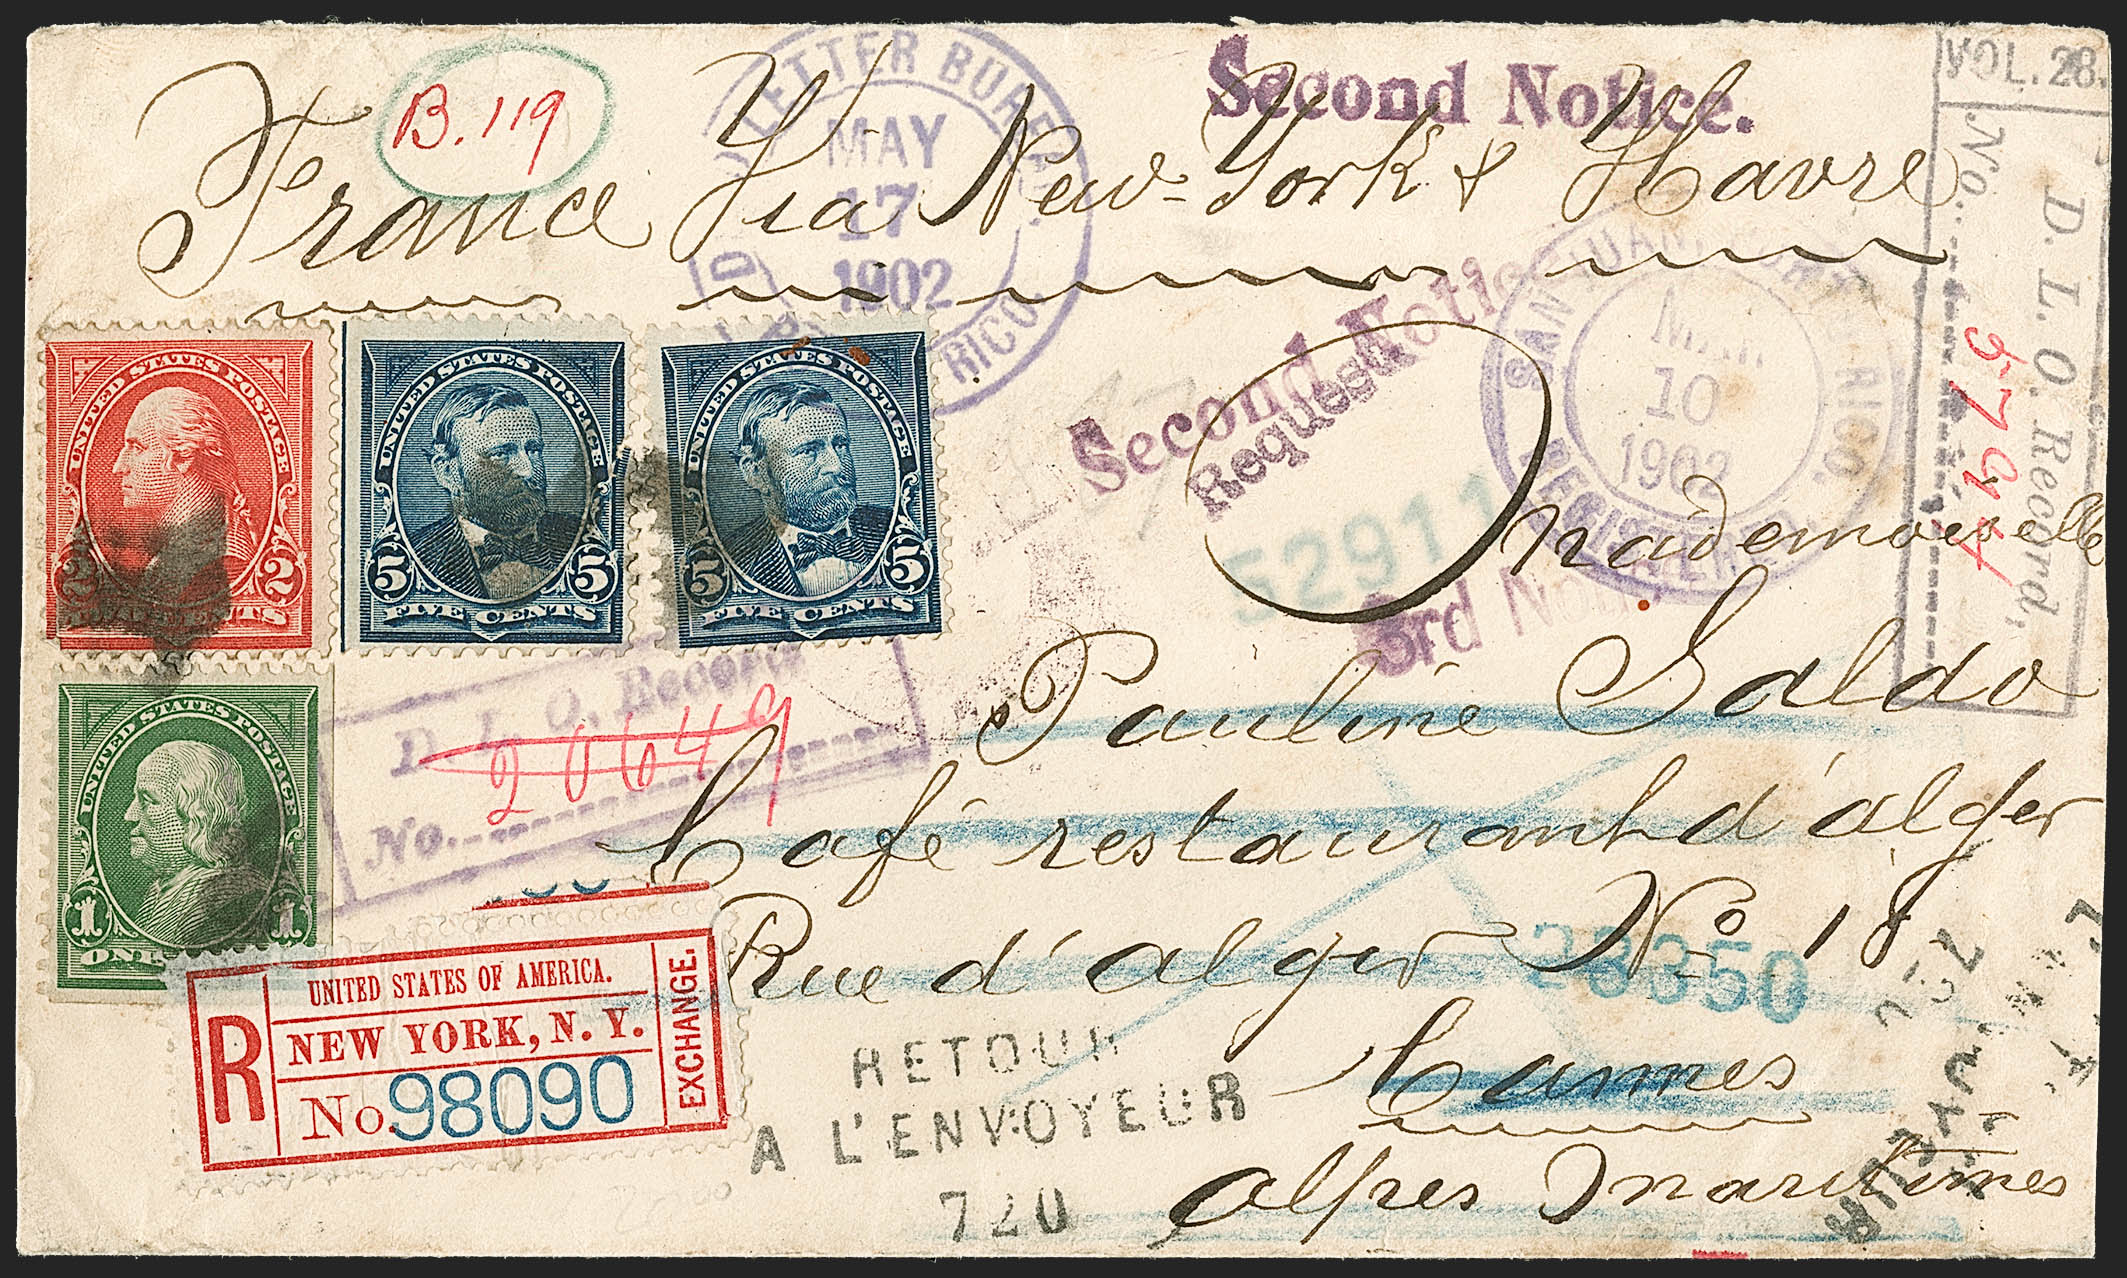 B. 119
LETTER BUREAU
MAY
17
1902
RICO.
Second Notice.
VOL. 28.
D. L. O. Record,
No.
57947
France Via New-York & Havre
Second Notice
Requested
SAN JUAN, PORTO RICO.
MAR
10
1902
REGISTERED
52911
3rd
UNITED STATES POSTAGE
2 2
UNITED STATES POSTAGE
5 5
FIVE CENTS
UNITED STATES POSTAGE
5 5
FIVE CENTS
UNITED STATES POSTAGE
1 1
ONE
D. L. O. Record
No.
20649
Mademoiselle
Pauline Saldo
Café restaurant d'alger
Rue d'alger No 18
23350
Cannes
Alpes Maritimes
R
UNITED STATES OF AMERICA.
NEW YORK, N. Y.
No. 98090
EXCHANGE.
RETOUR
A L'ENVOYEUR
720